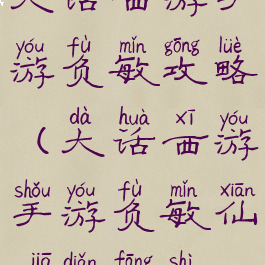 yóu fù mǐn gōng lüè
游负敏攻略
dà huà xī yóu
（大话西游
shǒu yóu fù mǐn xiān
手游负敏仙
jiā diǎn fāng shì